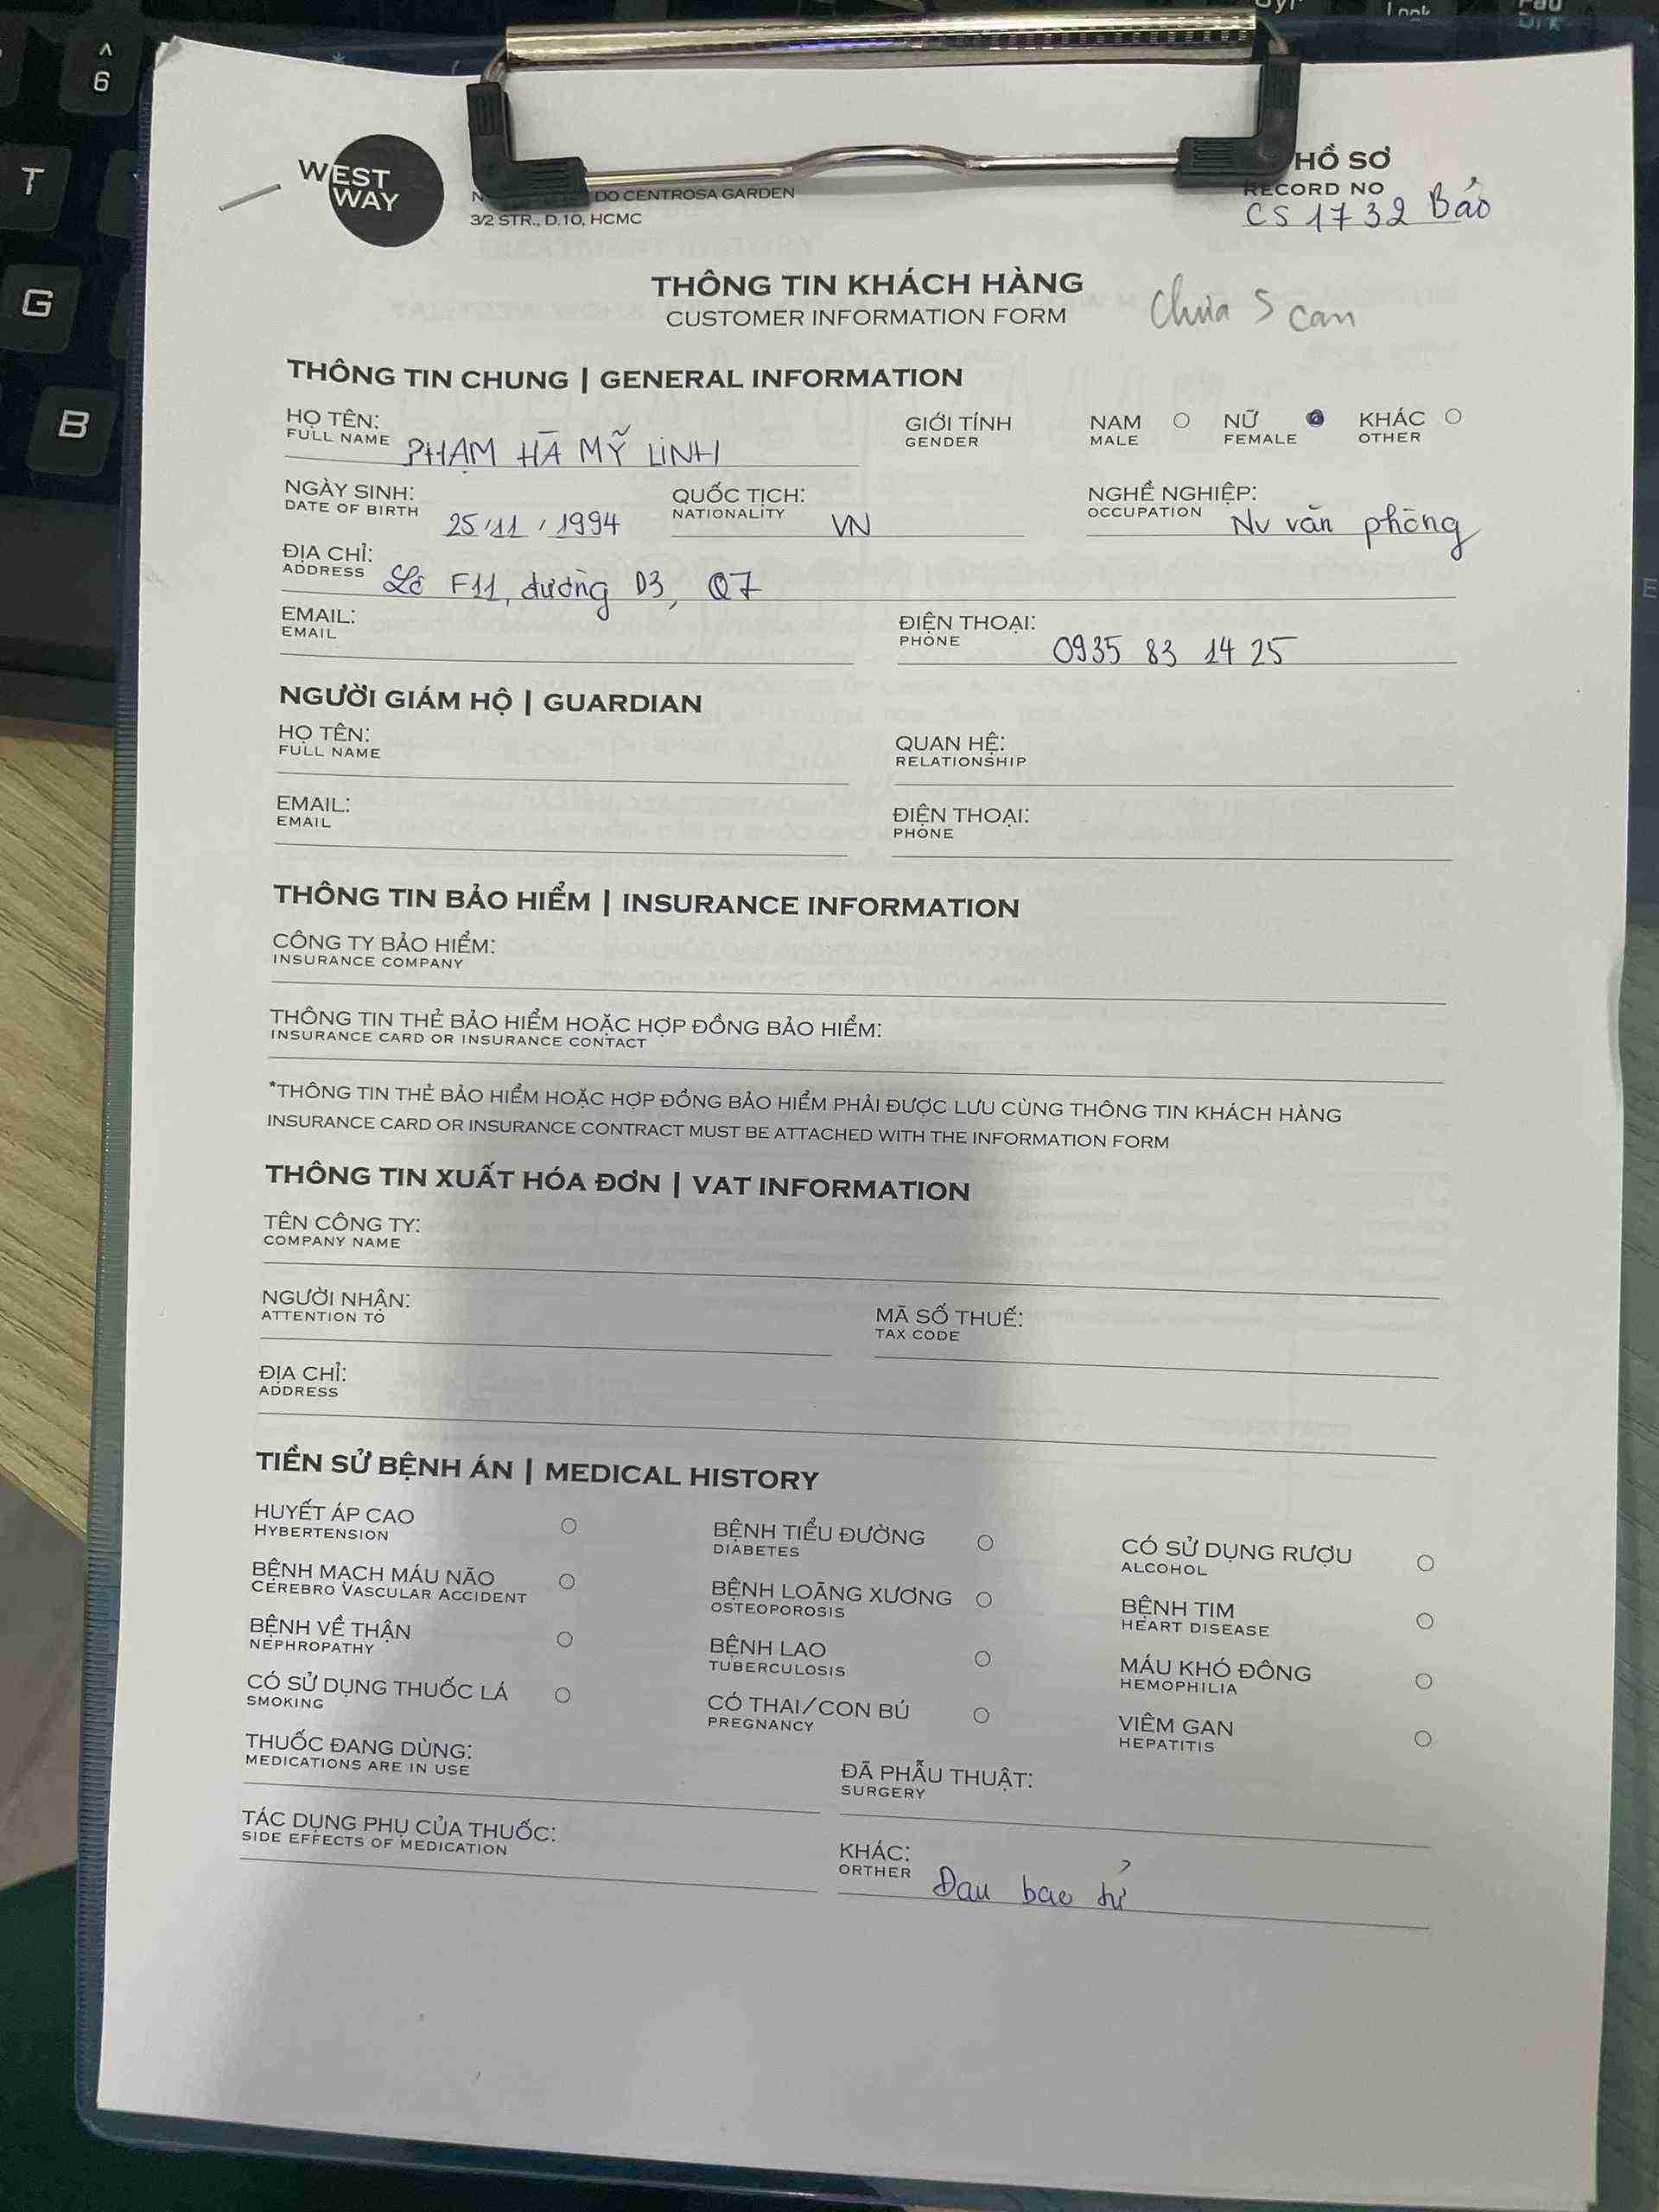 WEST
WAY
DO CENTROSA GARDEN
3/2 STR., D.10, HCMC
HỒ SƠ
RECORD NO
CS 1732 Bảo
THÔNG TIN KHÁCH HÀNG
CUSTOMER INFORMATION FORM
Chưa Scan
THÔNG TIN CHUNG | GENERAL INFORMATION
HỌ TÊN:
FULL NAME PHẠM HÀ MỸ LINH
GIỚI TÍNH
GENDER
NAM
MALE
NỮ
FEMALE
KHÁC
OTHER
NGÀY SINH:
DATE OF BIRTH 25/11/1994
QUỐC TỊCH:
NATIONALITY VN
NGHỀ NGHIỆP:
OCCUPATION Nv văn phòng
ĐỊA CHỈ:
ADDRESS Lô F11, đường D3, Q7
EMAIL:
EMAIL
ĐIỆN THOẠI:
PHONE 0935 83 14 25
NGƯỜI GIÁM HỘ | GUARDIAN
HỌ TÊN:
FULL NAME
QUAN HỆ:
RELATIONSHIP
EMAIL:
EMAIL
ĐIỆN THOẠI:
PHONE
THÔNG TIN BẢO HIỂM | INSURANCE INFORMATION
CÔNG TY BẢO HIỂM:
INSURANCE COMPANY
THÔNG TIN THẺ BẢO HIỂM HOẶC HỢP ĐỒNG BẢO HIỂM:
INSURANCE CARD OR INSURANCE CONTACT
*THÔNG TIN THẺ BẢO HIỂM HOẶC HỢP ĐỒNG BẢO HIỂM PHẢI ĐƯỢC LƯU CÙNG THÔNG TIN KHÁCH HÀNG
INSURANCE CARD OR INSURANCE CONTRACT MUST BE ATTACHED WITH THE INFORMATION FORM
THÔNG TIN XUẤT HÓA ĐƠN | VAT INFORMATION
TÊN CÔNG TY:
COMPANY NAME
NGƯỜI NHẬN:
ATTENTION TO
MÃ SỐ THUẾ:
TAX CODE
ĐỊA CHỈ:
ADDRESS
TIỀN SỬ BỆNH ÁN | MEDICAL HISTORY
HUYẾT ÁP CAO
HYBERTENSION
BỆNH TIỂU ĐƯỜNG
DIABETES
CÓ SỬ DỤNG RƯỢU
ALCOHOL
BỆNH MẠCH MÁU NÃO
CEREBRO VASCULAR ACCIDENT
BỆNH LOÃNG XƯƠNG
OSTEOPOROSIS
BỆNH TIM
HEART DISEASE
BỆNH VỀ THẬN
NEPHROPATHY
BỆNH LAO
TUBERCULOSIS
MÁU KHÓ ĐÔNG
HEMOPHILIA
CÓ SỬ DỤNG THUỐC LÁ
SMOKING
CÓ THAI/CON BÚ
PREGNANCY
VIÊM GAN
HEPATITIS
THUỐC ĐANG DÙNG:
MEDICATIONS ARE IN USE
ĐÃ PHẪU THUẬT:
SURGERY
TÁC DỤNG PHỤ CỦA THUỐC:
SIDE EFFECTS OF MEDICATION
KHÁC:
ORTHER Đau bao tử
6
T
G
B